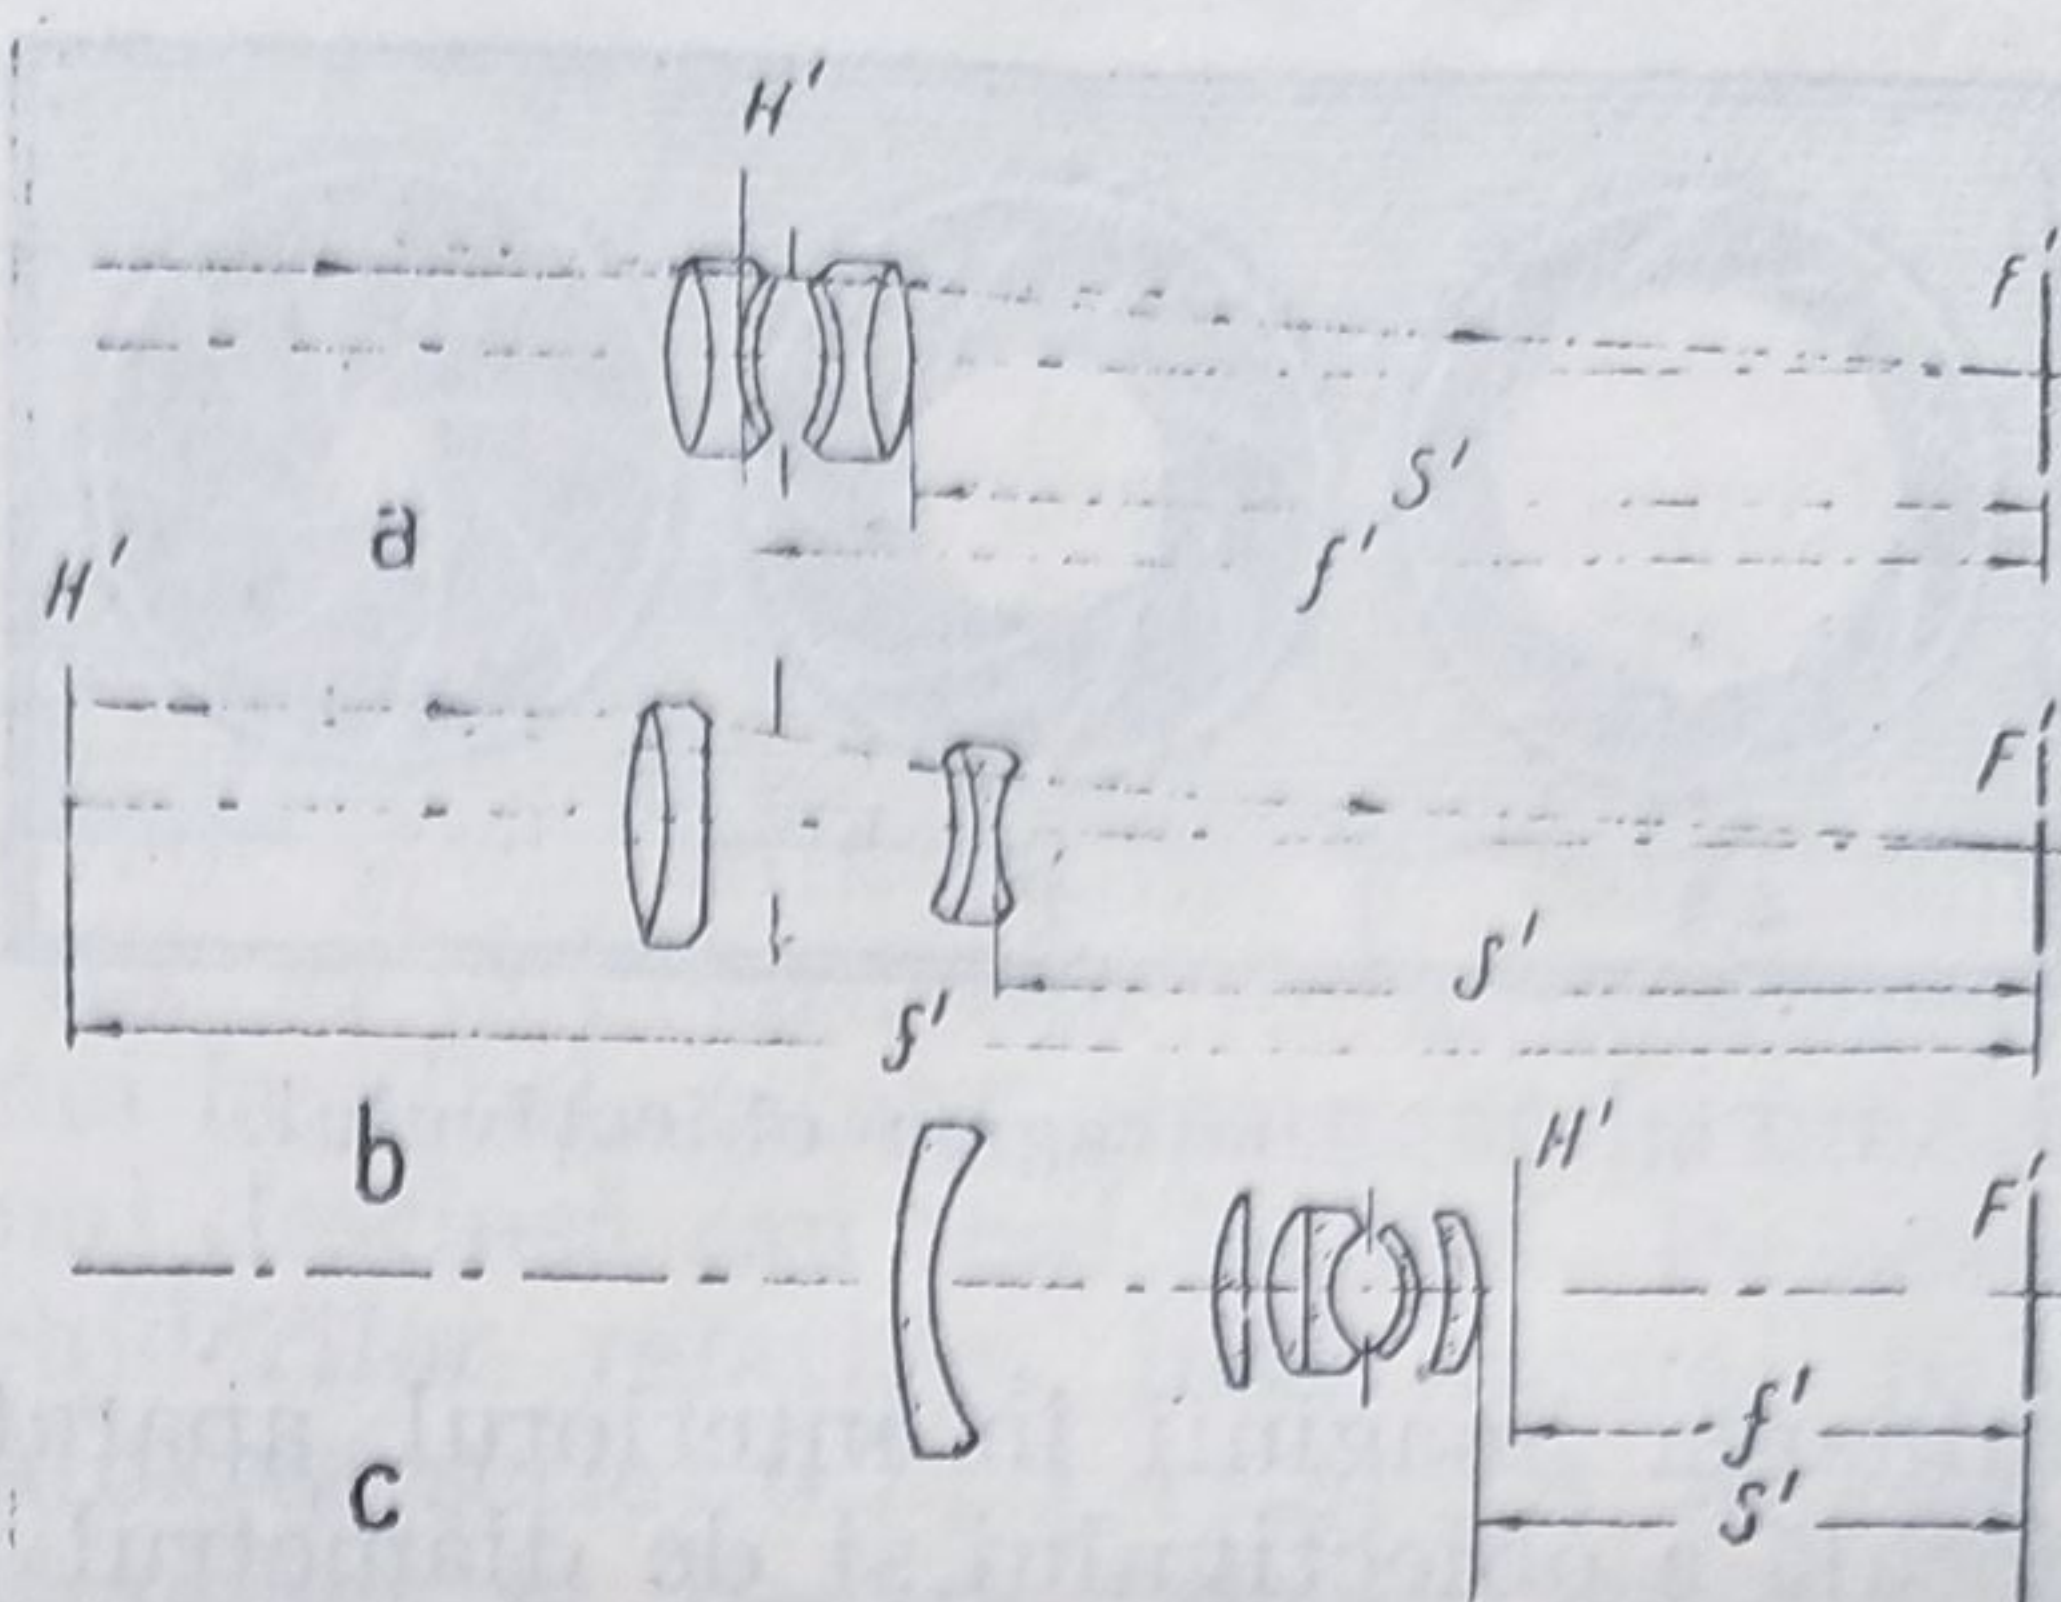 H'
F'
S'
f'
a
H'
F'
S'
f'
b
H'
F'
f'
S'
c